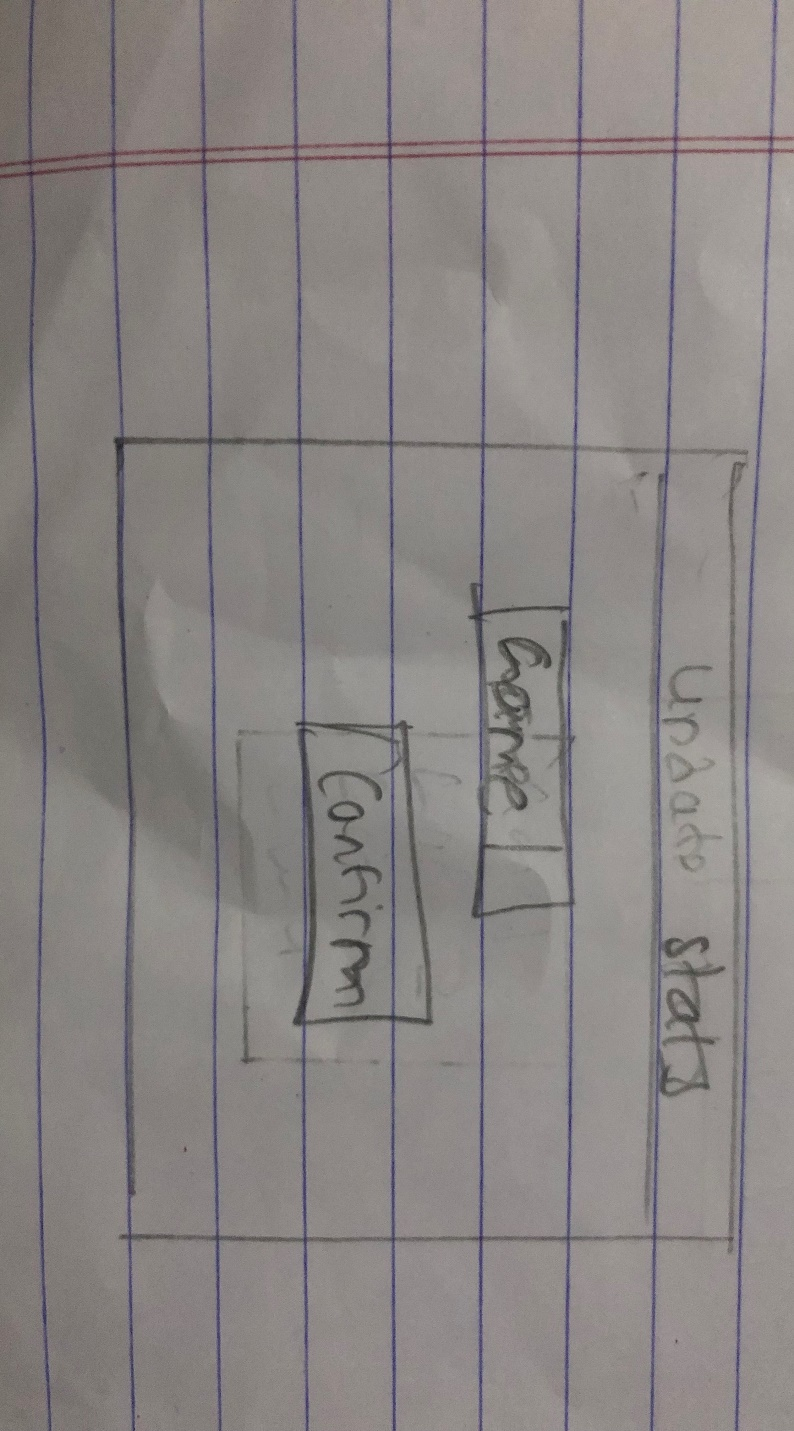 Undate stats
Game
Confirm